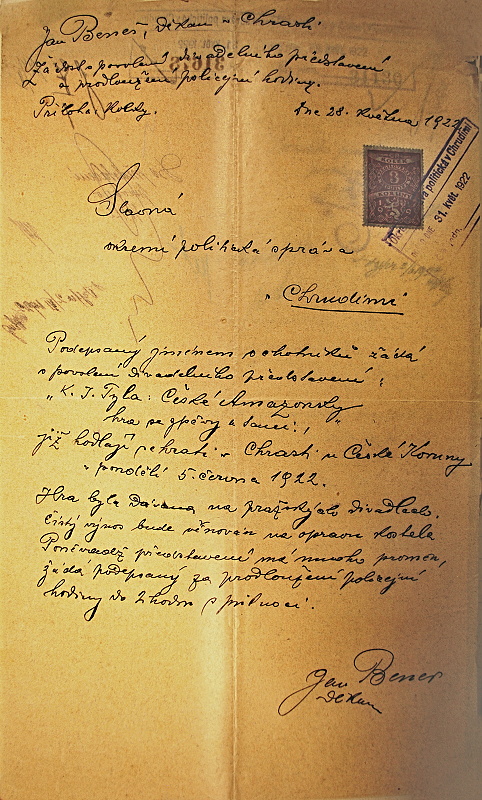 Jan Beneš, děkan v Chrasti
žádá o povolení divadelního představení
a prodloužení policejní hodiny.
Příloha: Kolky.
Dne 28. května 1922
KOLEK
3
KORUNY
politická v Chrudimi
31. květ. 1922
Slavná
okresní politická správa
v Chrudimi
Podepsaný jménem ochotníků žádá
o povolení divadelního představení:
„K. J. Tyla: České Amazonky
hra se zpěvy a tanci.,"
již hodlají sehrati v Chrasti u České Koruny
v pondělí 5. června 1922.
Hra byla dávána na pražských divadlech.
Čistý výnos bude věnován na opravu kostela
Poněvadž představení má mnoho proměn,
žádá podepsaný za prodloužení policejní
hodiny do 2 hodin s půlnoci.
Jan Beneš
děkan